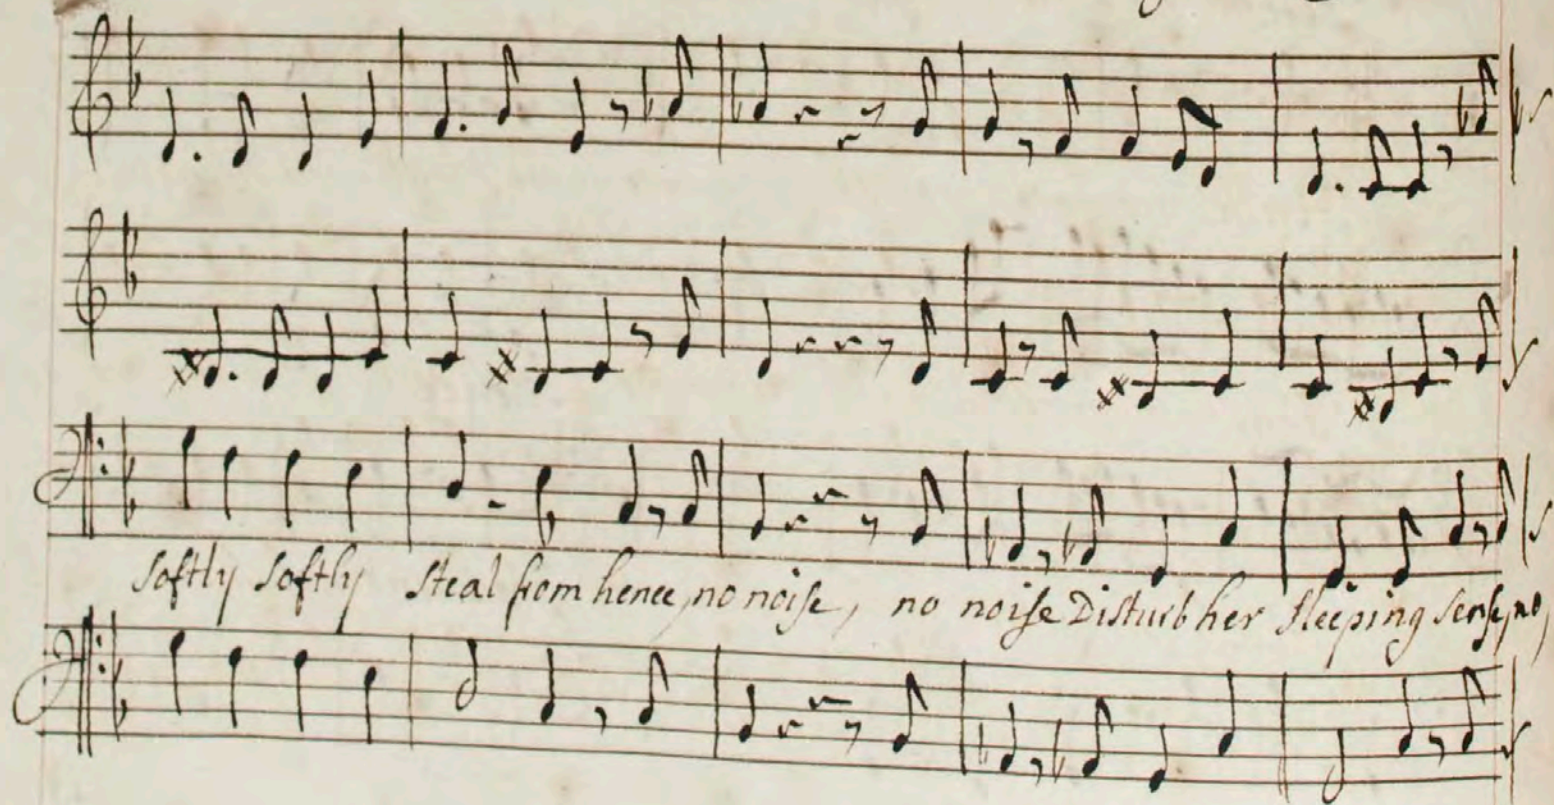 Softly softly steal from hence, no noise, no noise Disturb her sleeping sense, no,